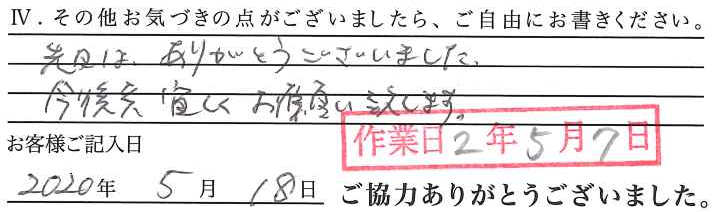 Ⅳ．その他お気づきの点がございましたら、ご自由にお書きください。
先日は、ありがとうございました。
今後共 宜しく お願い致します。
お客様ご記入日
作業日 2年5月7日
2020年 5月 18日 ご協力ありがとうございました。